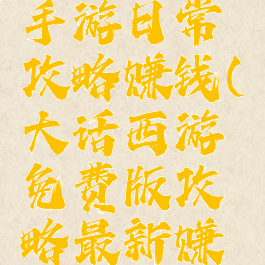 手游日常
攻略赚钱(
大话西游
免费版攻
略最新赚